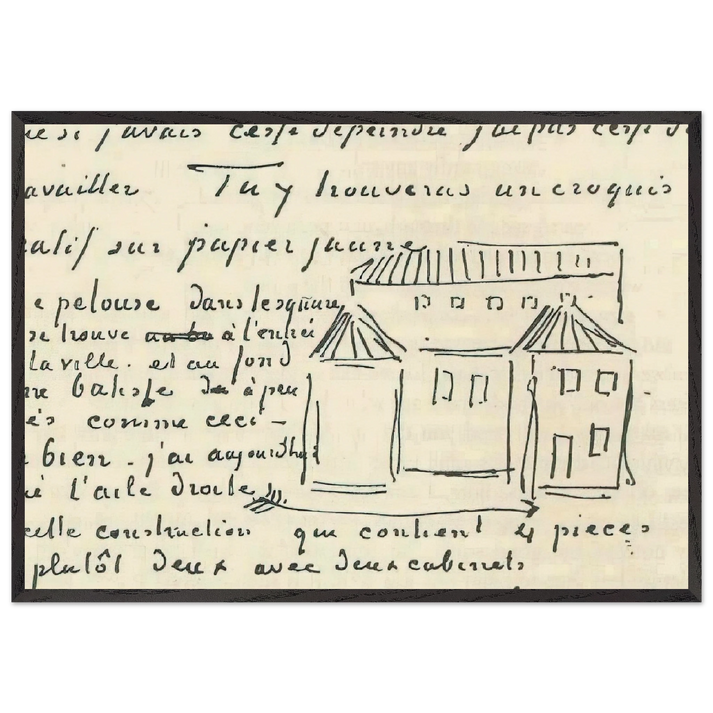 si j'avais cessé de peindre j'ai pas cessé de
availler Tu y trouveras un croquis
atif sur papier jaune
e pelouse dans le square
se trouve à l'entrée
la ville. et au fond
ne batisse à peu
ès comme ceci –
bien – j'ai aujourd'hui
é l'aile droite
cette construction qui contient 4 pieces
plutôt deux avec deux cabinets